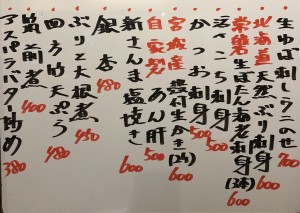 生ゆば刺しウニのせ 600
北海道天然ぶり刺身 700
常磐生ぼたん海老刺身(3本) 600
活〆こち刺身 500
かつお刺身 500
宮城産殻付生かき(2ヶ) 600
自家製あん肝 500
新さんま塩焼き 600
銀杏 480
ぶりと大根煮 450
四方竹天ぷら 480
筑前煮 400
アスパラバター炒め 380